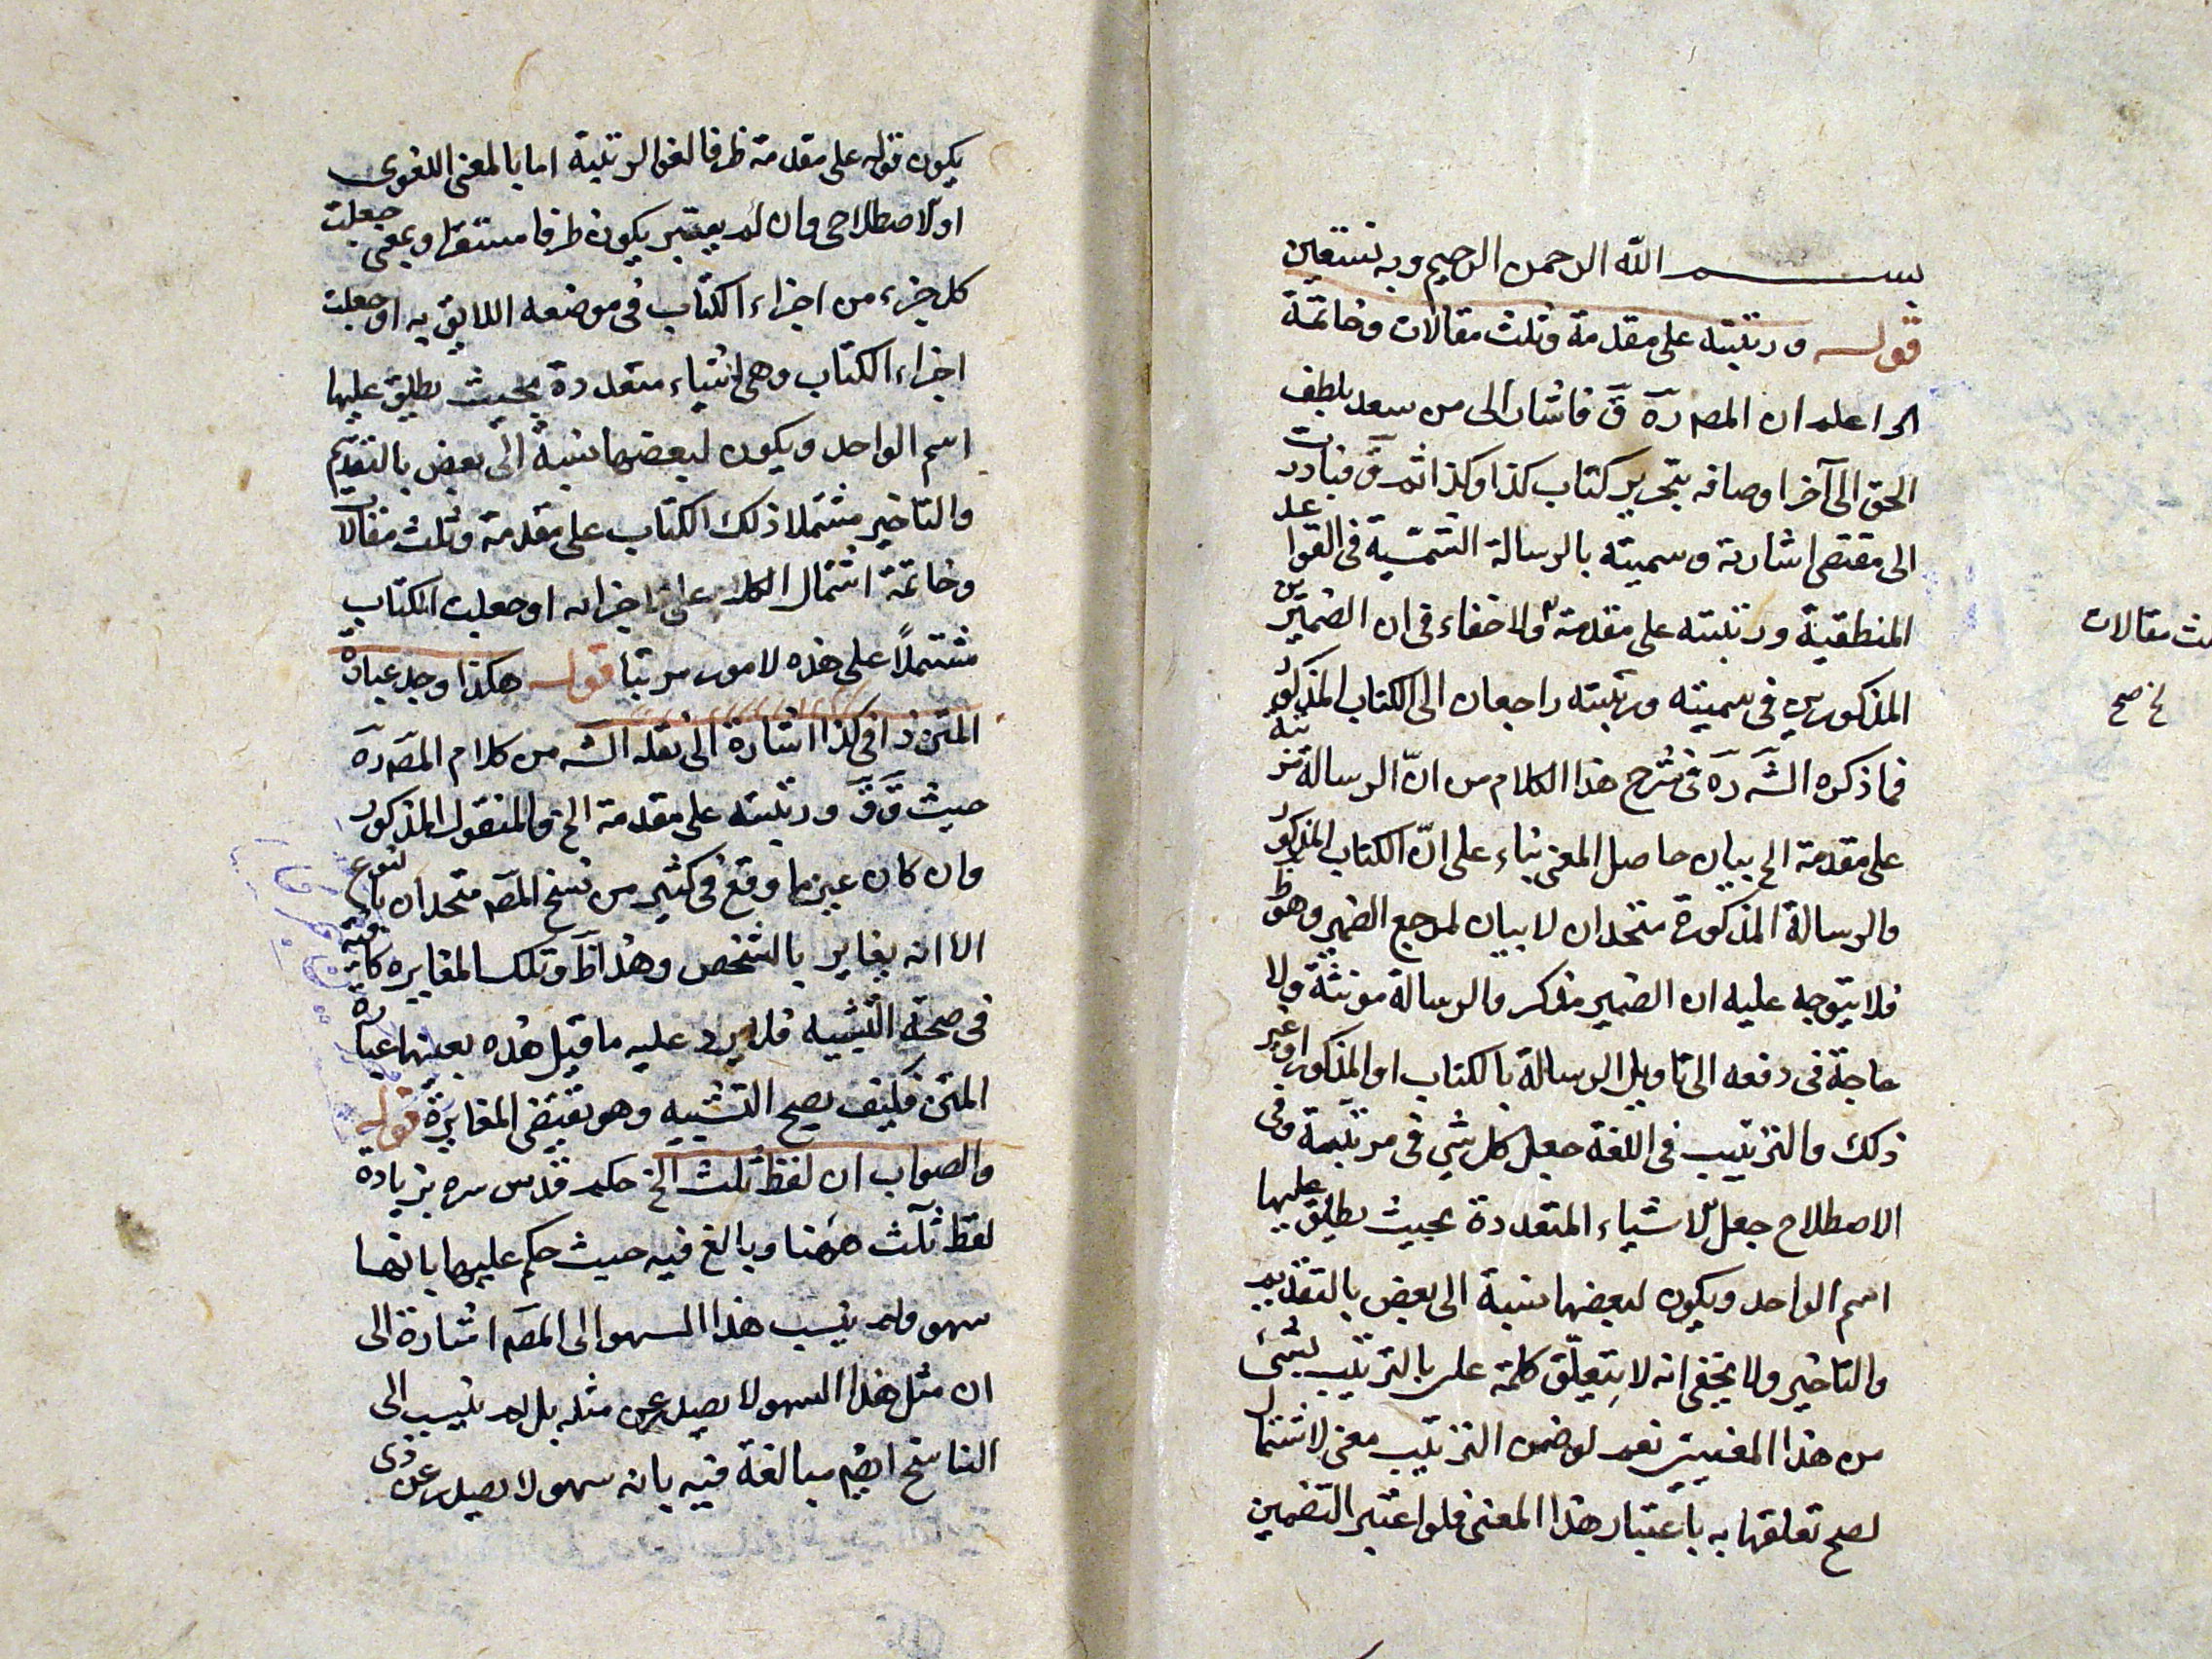 بسم الله الرحمن الرحيم وبه نستعين
قوله ورتبته على مقدمة وثلث مقالات وخاتمة
الخ اعلم ان المصـ رهَ قَ فاشار الى من سعد بلطف
الحق الى آخر اوصافه بتحرير كتاب كذا وكذا ثم قَ فبادرت
الى مقتضى اشارته وسميته بالرسالة الشمسية فى القواعد
المنطقية ورتبته على مقدمة ولا خفاء فى ان الضميرين
ثلث مقالات
الخ صح
المذكورين فى سميته ورتبته راجعان الى الكتاب المذكور
فما ذكره الشـَ رهَ فى شرح هذا الكلام من انّ الرسالة مرتبة
على مقدمة الخ بيان حاصل المعنى بناء على انّ الكتاب المذكور
والرسالة المذكورة متحدان لا بيان لمرجع الضمير وهو ظ
فلا يتوجه عليه ان الضمير مذكر والرسالة مونثة ولا
حاجة فى دفعه الى تاويل الرسالة بالكتاب او المذكور او غير
ذلك والترتيب فى اللغة جعل كل شئ فى مرتبته وفى
الاصطلاح جعل الاشياء المتعددة بحيث يطلق عليها
اسم الواحد ويكون لبعضها نسبة الى بعض بالتقديم
والتاخير ولا يخفى انه لا يتعلّق كلمة على بالترتيب بشئ
من هذا المعنيين نعم لو ضمن الترتيب معنى الاشتمال
لصح تعلقها به باعتبار هذا المعنى فلو اعتبر التضمين
يكون قوله على مقدمة ظرفا لغوا لرتبته اما بالمعنى اللغوى
او الاصطلاحى وان لم يعتبر يكون ظرفا مستقرا وبمعنى جعلت
كل جزء من اجزاء الكتاب فى موضعه اللايق به او جعلت
اجزاء الكتاب وهى اشياء متعددة بحيث يطلق عليها
اسم الواحد ويكون لبعضها نسبة الى بعض بالتقديم
والتاخير مشتملا ذلك الكتاب على مقدمة وثلث مقالات
وخاتمة اشتمال الكل على اجزائه او جعلت الكتاب
مشتملاً على هذه الامور مرتبا قوله هكذا وجد عبارة
المتن ذا فى كذا اشارة الى نقله الشـ من كلام المصـَ رهَ
حيث قَ قَ ورتبته على مقدمة الخ والمنقول المذكور
وان كان عين ما وقع فى كثير من نسخ المصـَ متحدان بالنوع
الا انه يغاير بالشخص وهذا ظَ وتلك المغايره كافية
فى صحة التشبيه فلا يرد عليه ما قيل هذه بعينها عبارة
المتن فكيف يصح التشبيه وهو يقتضى المغايرة قوله
والصواب ان لفظ ثلث الخ حكم قدس سره بزيادة
لفظ ثلث ههنا وبالغ فيه حيث حكم عليها بانها
سهو ولم ينسب هذا السهو الى المصـَ اشارة الى
ان مثل هذا السهو لا يصدر عن مثله بل لم ينسب الى
الناسخ ايضم مبالغة فيه بانه سهو لا يصدر عن ذى